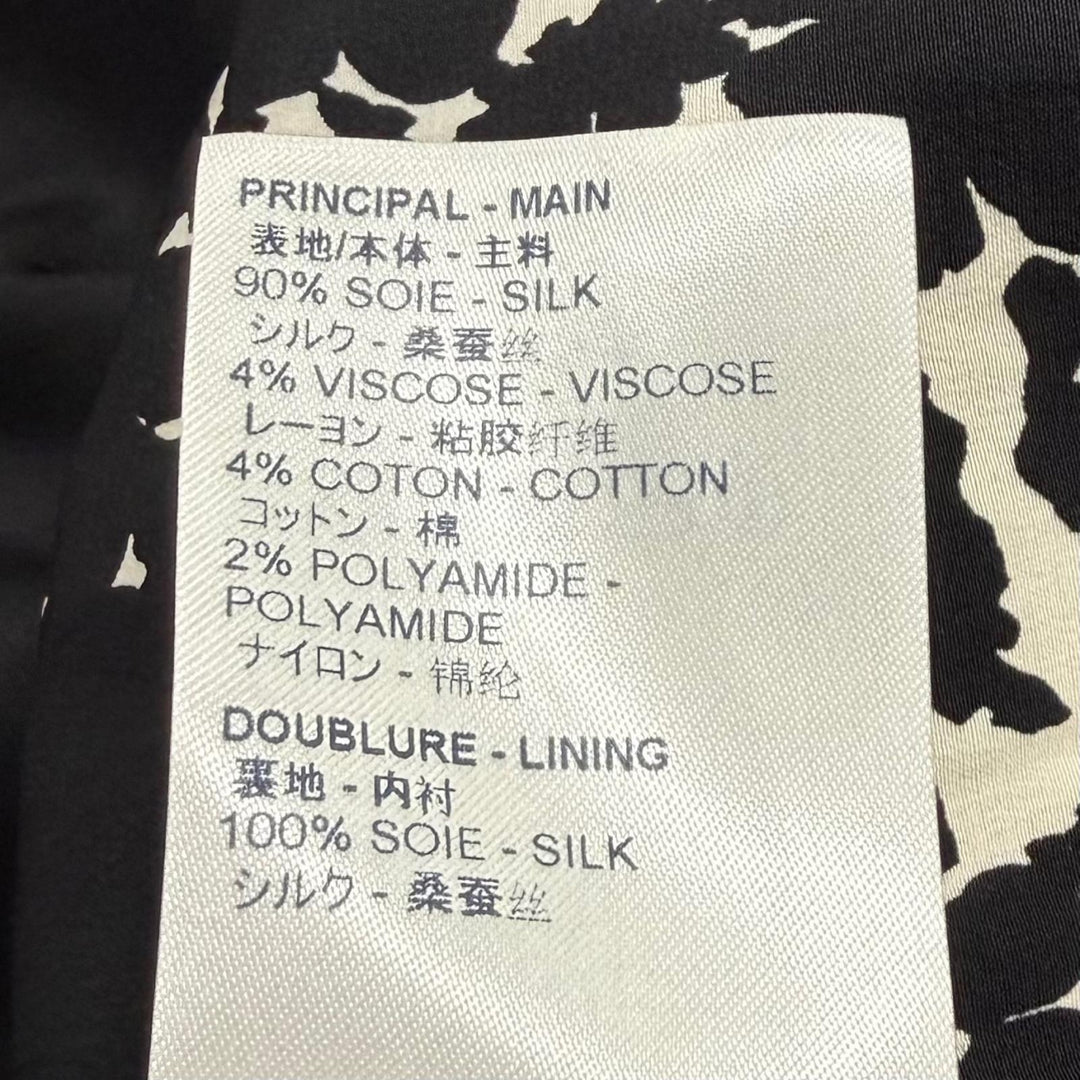 PRINCIPAL - MAIN
表地/本体 - 主料
90% SOIE - SILK
シルク - 桑蚕丝
4% VISCOSE - VISCOSE
レーヨン - 粘胶纤维
4% COTON - COTTON
コットン - 棉
2% POLYAMIDE -
POLYAMIDE
ナイロン - 锦纶
DOUBLURE - LINING
裏地 - 内衬
100% SOIE - SILK
シルク - 桑蚕丝